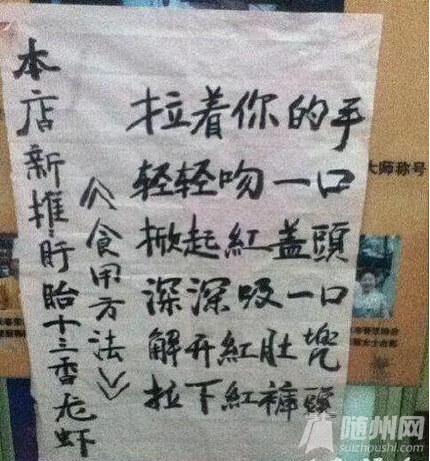 本店新推盱眙十三香龙虾
《食用方法》
拉着你的手
轻轻吻一口
掀起紅盖頭
深深吸一口
解开紅肚兜
拉下紅裤頭
大师称号
随州网
suizhoushi.com